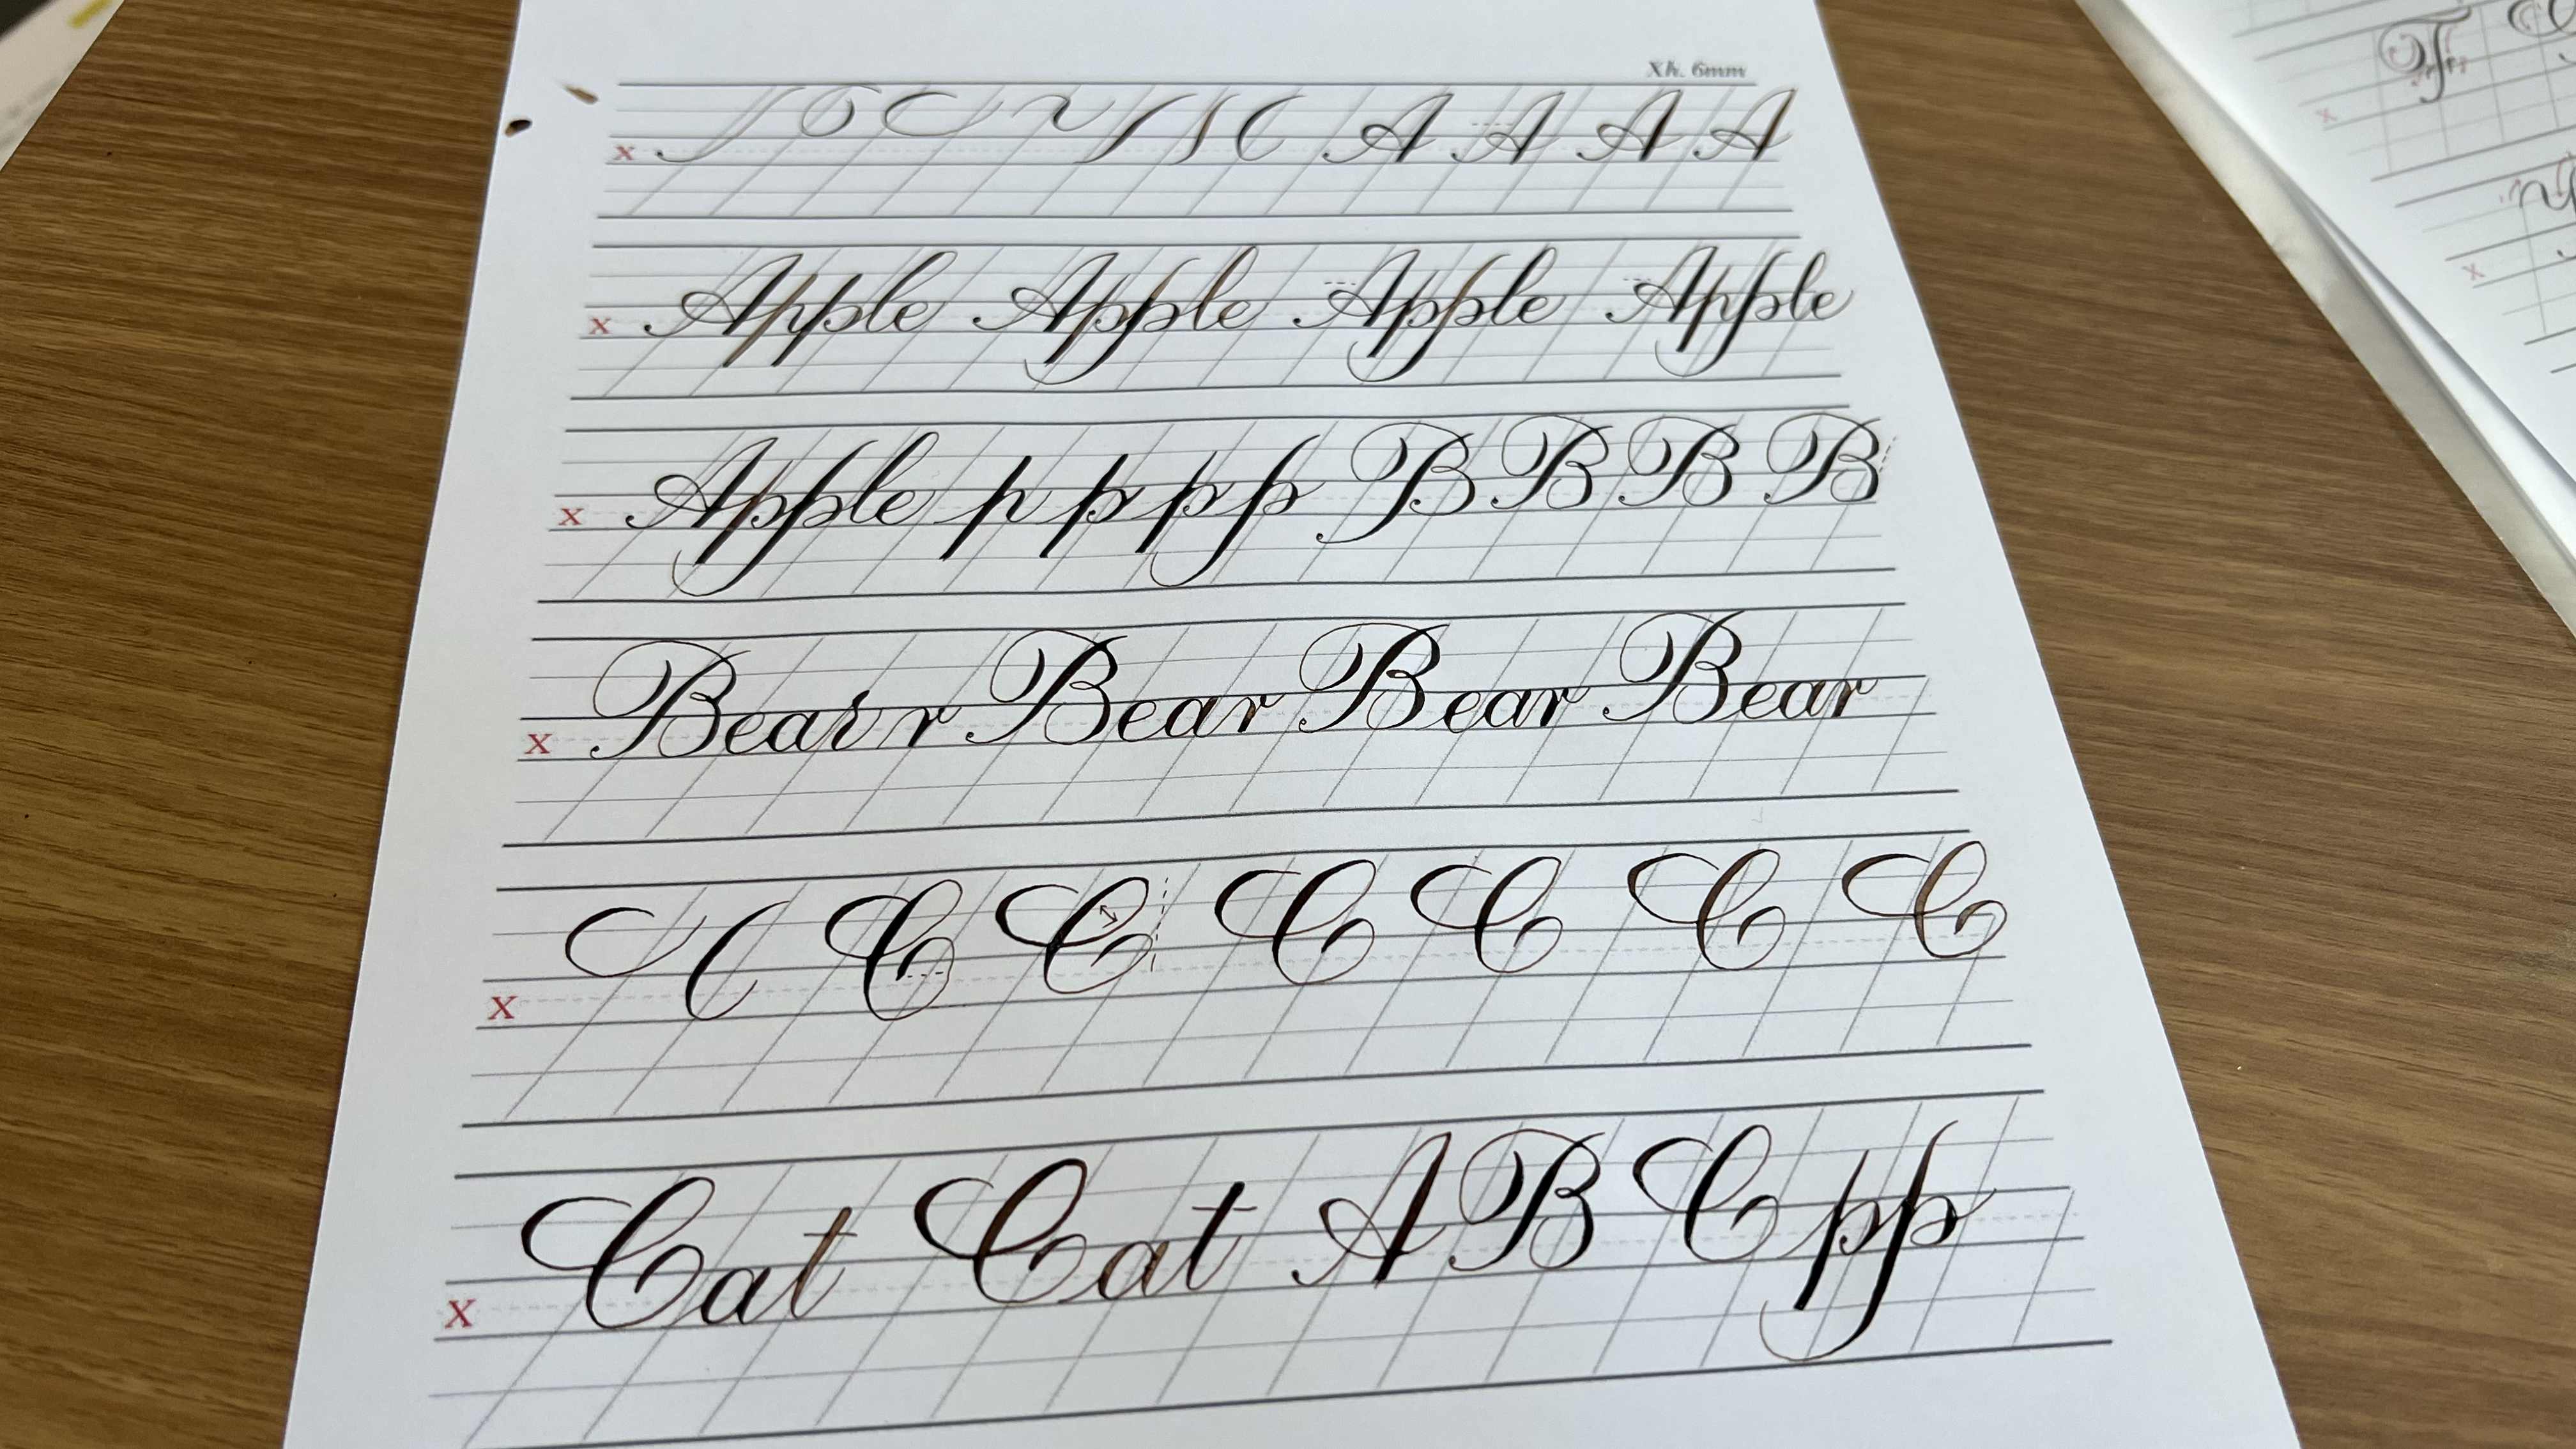 Xh. 6mm
x A A A A
x Apple Apple Apple Apple
x Apple p p p p B B B B
x Bear r Bear Bear Bear
x C C C C C C
x Cat Cat A B C p p